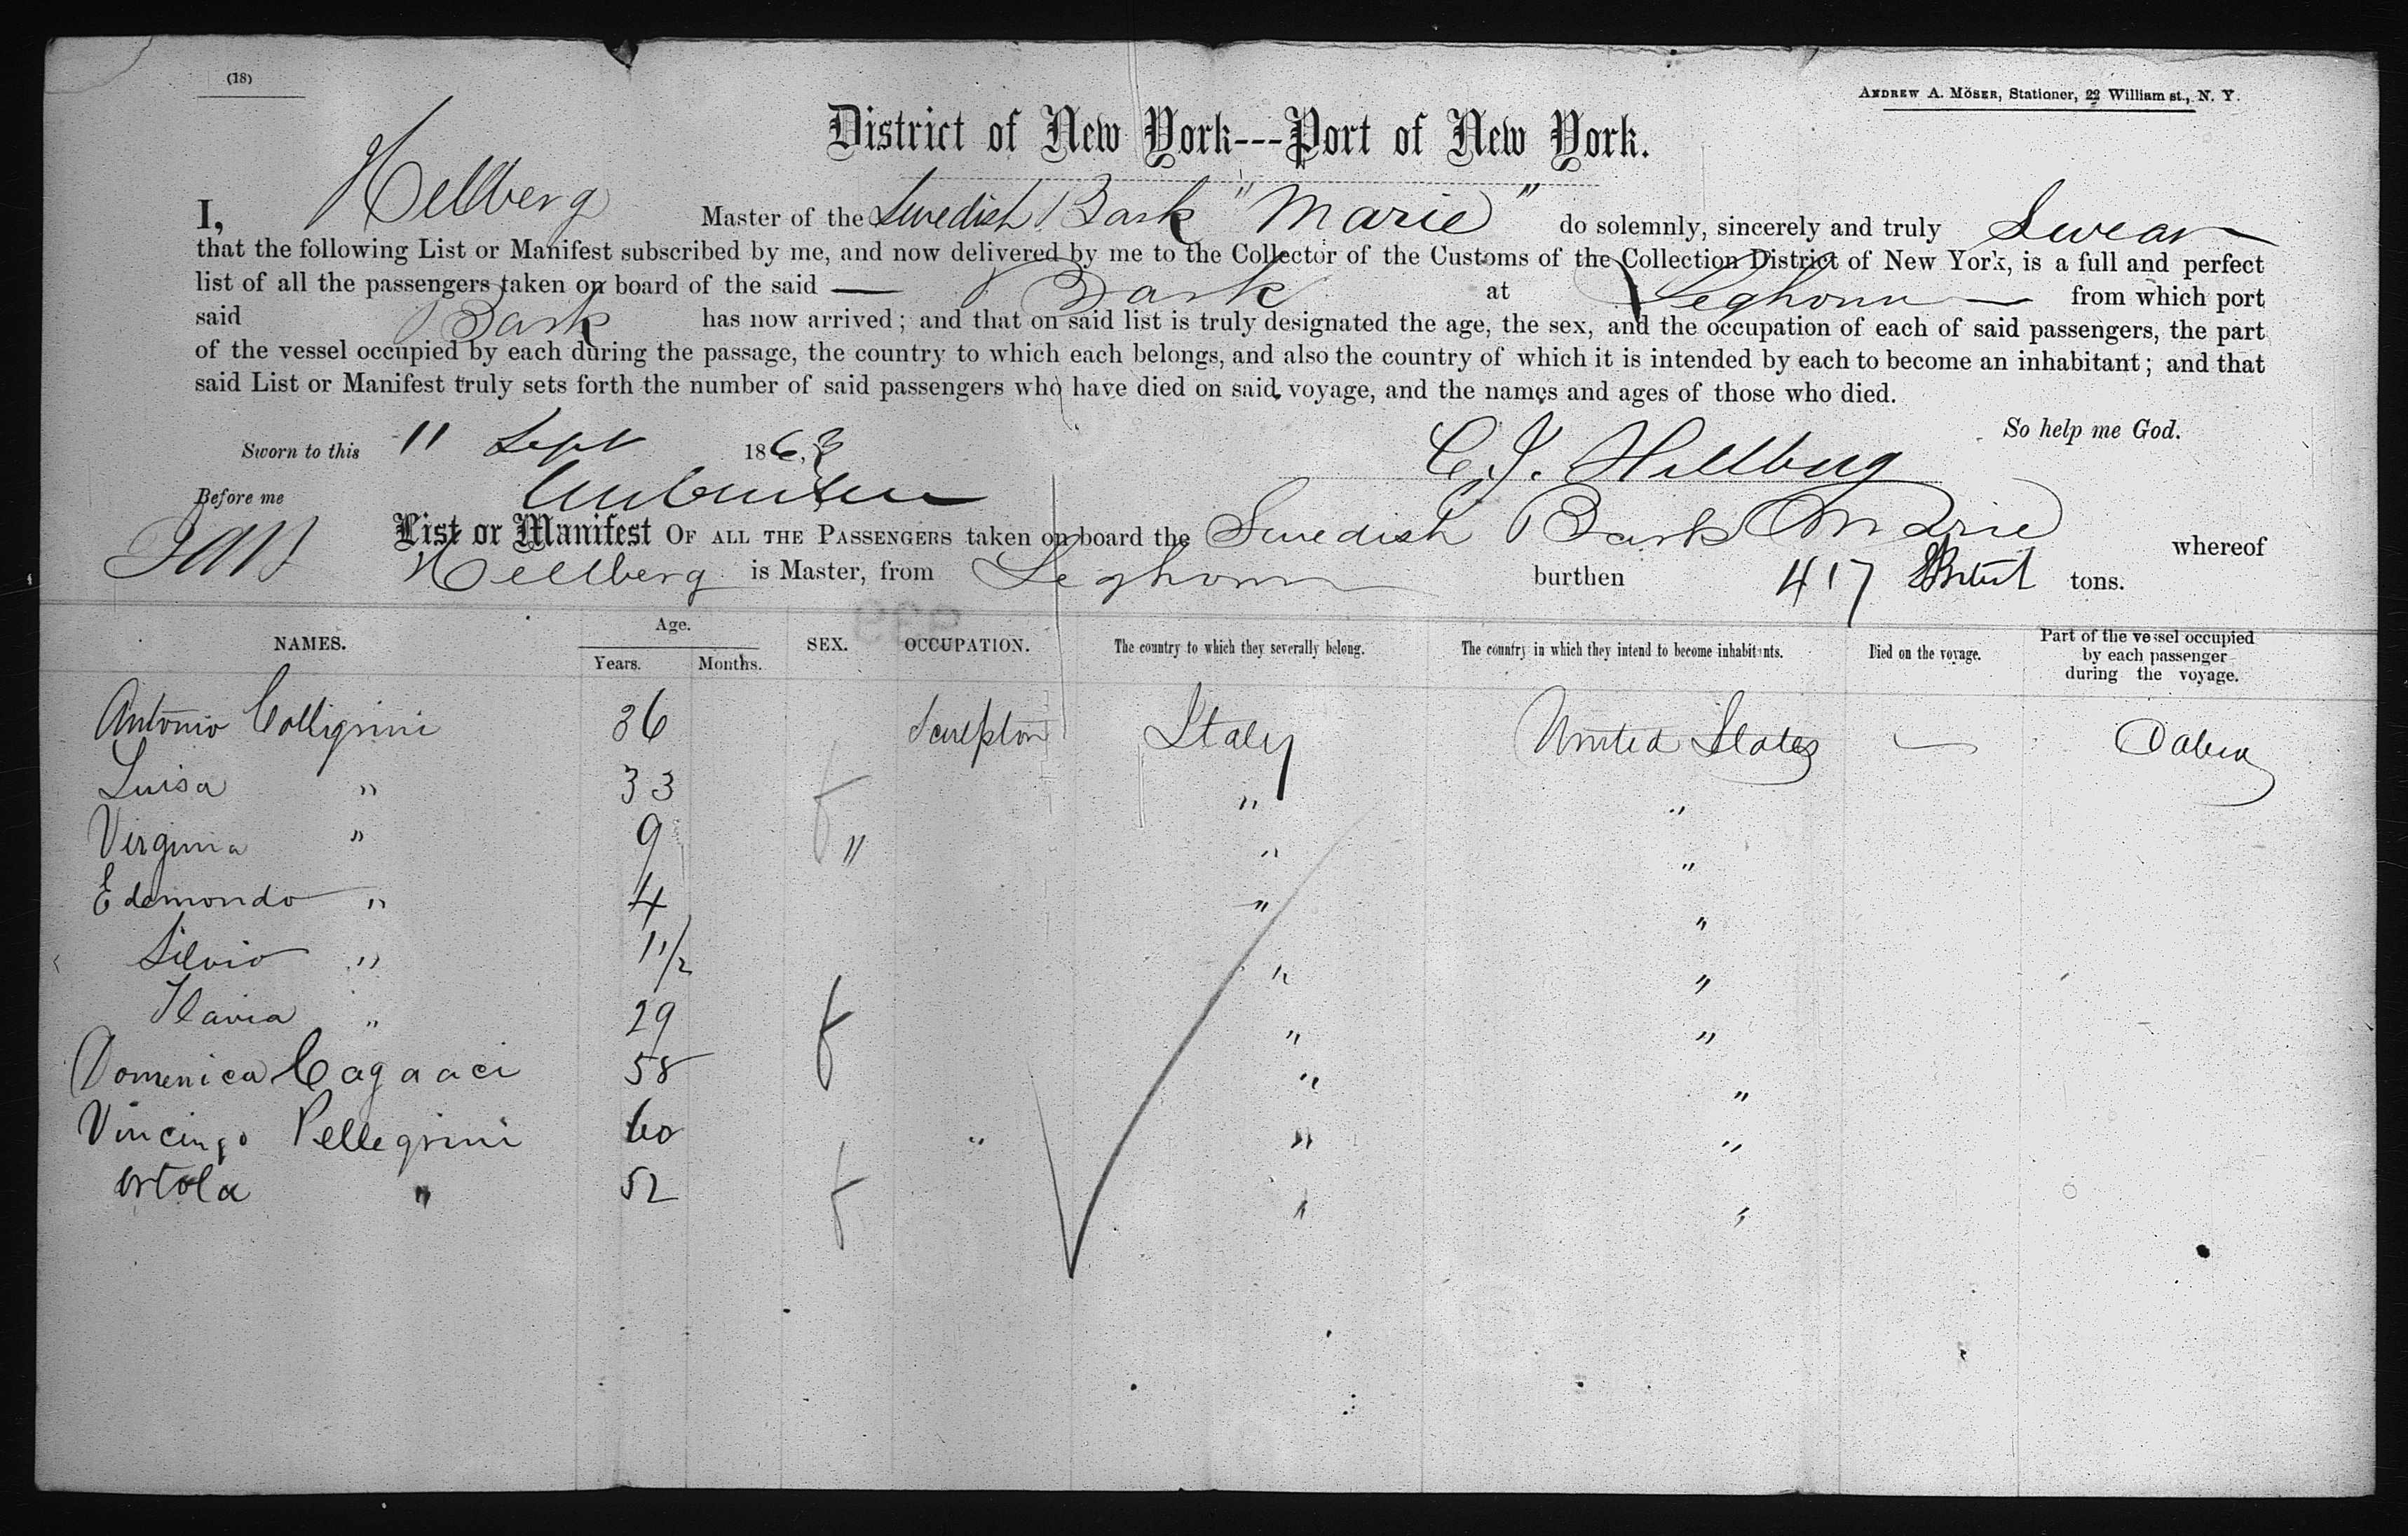 (18)
ANDREW A. MÖSER, Stationer, 22 William st., N. Y.
District of New York---Port of New York.
I, Hellberg Master of the Swedish Bark "Marie" do solemnly, sincerely and truly Swear
that the following List or Manifest subscribed by me, and now delivered by me to the Collector of the Customs of the Collection District of New York, is a full and perfect
list of all the passengers taken on board of the said — Bark at Leghorn — from which port
said Bark has now arrived; and that on said list is truly designated the age, the sex, and the occupation of each of said passengers, the part
of the vessel occupied by each during the passage, the country to which each belongs, and also the country of which it is intended by each to become an inhabitant; and that
said List or Manifest truly sets forth the number of said passengers who have died on said voyage, and the names and ages of those who died.
So help me God.
Sworn to this 11 Sept 1863
C. J. Hellberg
Before me
List or Manifest OF ALL THE PASSENGERS taken on board the Swedish Bark Marie whereof
Hellberg is Master, from Leghorn burthen 417 tons.
NAMES. Age. Years. Months. SEX. OCCUPATION. The country to which they severally belong. The country in which they intend to become inhabitants. Died on the voyage. Part of the vessel occupied by each passenger during the voyage.
Antonio 36 Sculptor Italy United States —
Luisa " 33 f " "
Virginia " 9 " " "
Edemondo " 4 " "
Silvio " 1 1/2 " "
Flavia " 29 f " "
Domenica Cagaaci 58 " "
Pellegrini 60 " " "
" 52 f " "